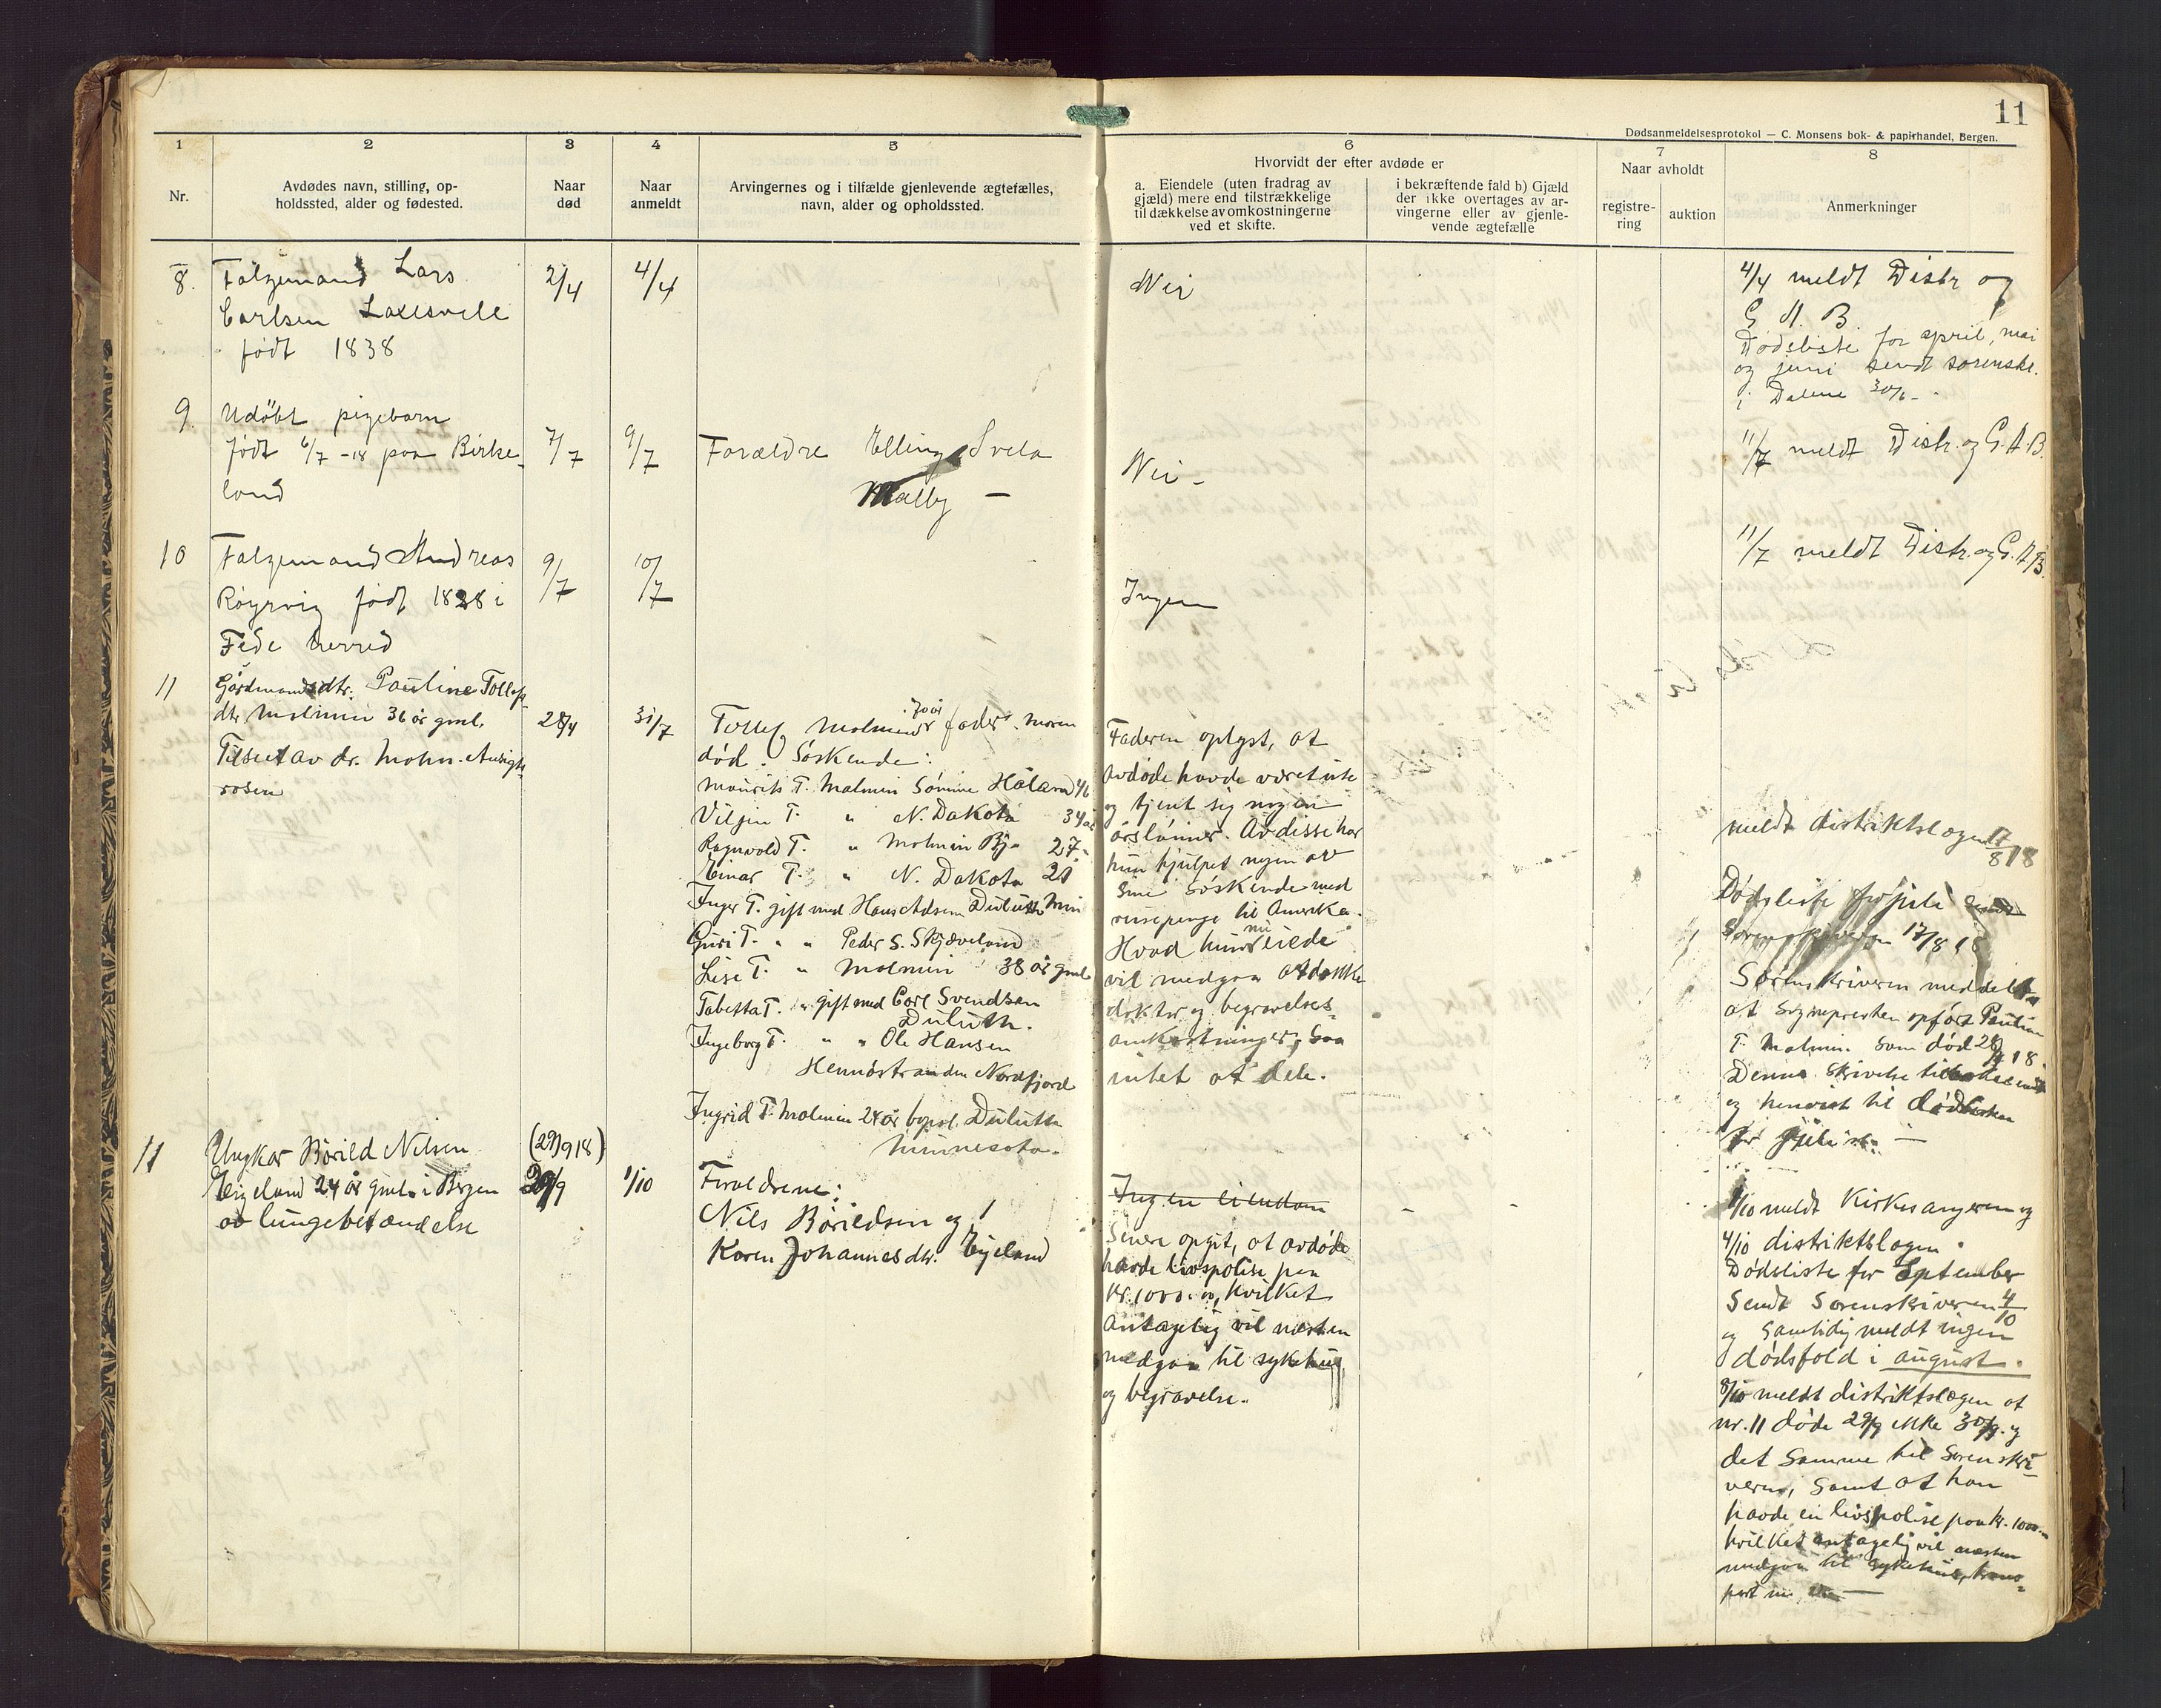 11
Dødsanmeldelsesprotokol — C. Monsens bok- & papirhandel, Bergen.
1
Nr.
2
Avdødes navn, stilling, op-
holdssted, alder og fødested.
3
Naar
død
4
Naar
anmeldt
5
Arvingernes og i tilfælde gjenlevende ægtefælles,
navn, alder og opholdssted.
6
Hvorvidt der efter avdøde er
a. Eiendele (uten fradrag av
gjæld) mere end tilstrækkelige
til dækkelse av omkostningerne
ved et skifte.
i bekræftende fald b) Gjæld
der ikke overtages av ar-
vingerne eller av gjenle-
vende ægtefælle
7
Naar avholdt
registre-
ring
auktion
8
Anmerkninger
8.
Folgemand Lars
Carlsen
født 1838
2/4
4/4
Nei
4/4 meldt Distr og
G. A. B.
Dødsliste for april, mai
og juni sendt sorenskr.
i Dalene 30/6 -
9.
Udøbt pigebarn
født 6/7 -18 paa Birke-
land
7/7
9/7
Forældre Elling Svela
Mally —
Nei -
11/7 meldt Distr. og G. A. B.
10
Folgemand Andreas
Røyrvig født 1838 i
Fede herred
9/7
10/7
Ingen
11/7 meldt Distr. og G. A. B.
11
Gårdmandsdtr. Pauline Tollefs
dtr Malmin 36 år gml.
Tilset av dr. Mohn. Ansigts
rosen
28/7
31/7
Tollef Malmin 70 år fader. Moren
død. Søskende:
Maurits T. Malmin Sømme Håland 46
Viljen T. " N. Dakota 34 år
Ragnvald T. " Malmin Bj. 27 "
Einar T. " N. Dakota 21
Inger T. gift med Hans Adsem Duluth Min
Guri T. " " Peder S. Skjæveland
Lise T. " Malmin 38 år gml
Tabetta T. " gift med Carl Svendsen
Duluth.
Ingeborg T. " " Ole Hansen
Hennøstranden Nordfjord
Ingrid T. Malmin 24 år bopæl Duluth
Minnesota.
Faderen oplyst, at
avdøde havde været ute
og tjent sig nogen
årslønner. Av disse har
hun hjulpet nogen av
sine søskende med
reisepenge til Amerika.
Hvad hun nu eiede
vil medgaa at dække
doktor og begravelses-
omkostninger, saa
intet at dele.
meldt distriktslægen 17/8 18
Dødsliste for juli sendt
Sorenskriveren 17/8 18
Sorenskriveren meddelt
at sognepresten opført Pauline
T. Malmin som død 28/7 18
Denne skrivelse tilbakesendt
og henvist til dødslisten
for juli m. —
11
Ungkar Børild Nilsen
Eigeland 24 år gml. i Bergen
av lungebetændelse
(29/9 18)
30/9
1/10
Forældrene:
Nils Børildsen og
Karen Johannesdtr. Eigeland
Ingen eiendom
Senere opgit, at avdøde
havde livspolise paa
kr. 1000.00, hvilket
antagelig vil næsten
medgaa til sykehus
og begravelse.
1/10 meldt Kirkesangeren og
4/10 distriktslægen.
Dødsliste for September
Sendt Sorenskriveren 4/10
og samtidig meldt ingen
dødsfald i august.
8/10 meldt distriktslægen at
nr. 11 døde 29/9 ikke 30/9. og
det samme til Sorenskri-
veren, samt at han
havde en livspolise paa kr. 1000.-
hvilket antagelig vil næsten
medgaa til sykehus, trans-
port m.